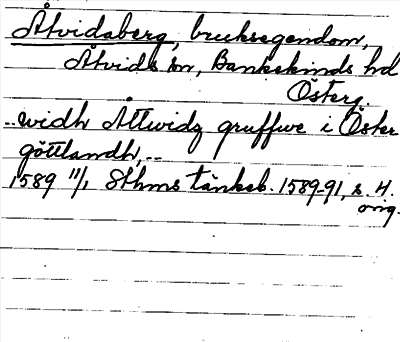 Åtvidaberg, bruksegendom,
Åtvids sn, Bankekinds hd
Österg.
..widh Åttwidz gruffwe i Öster
göttlandh,..
1589 11/1 Sthms tänkeb. 1589-91, s. 4.
orig.